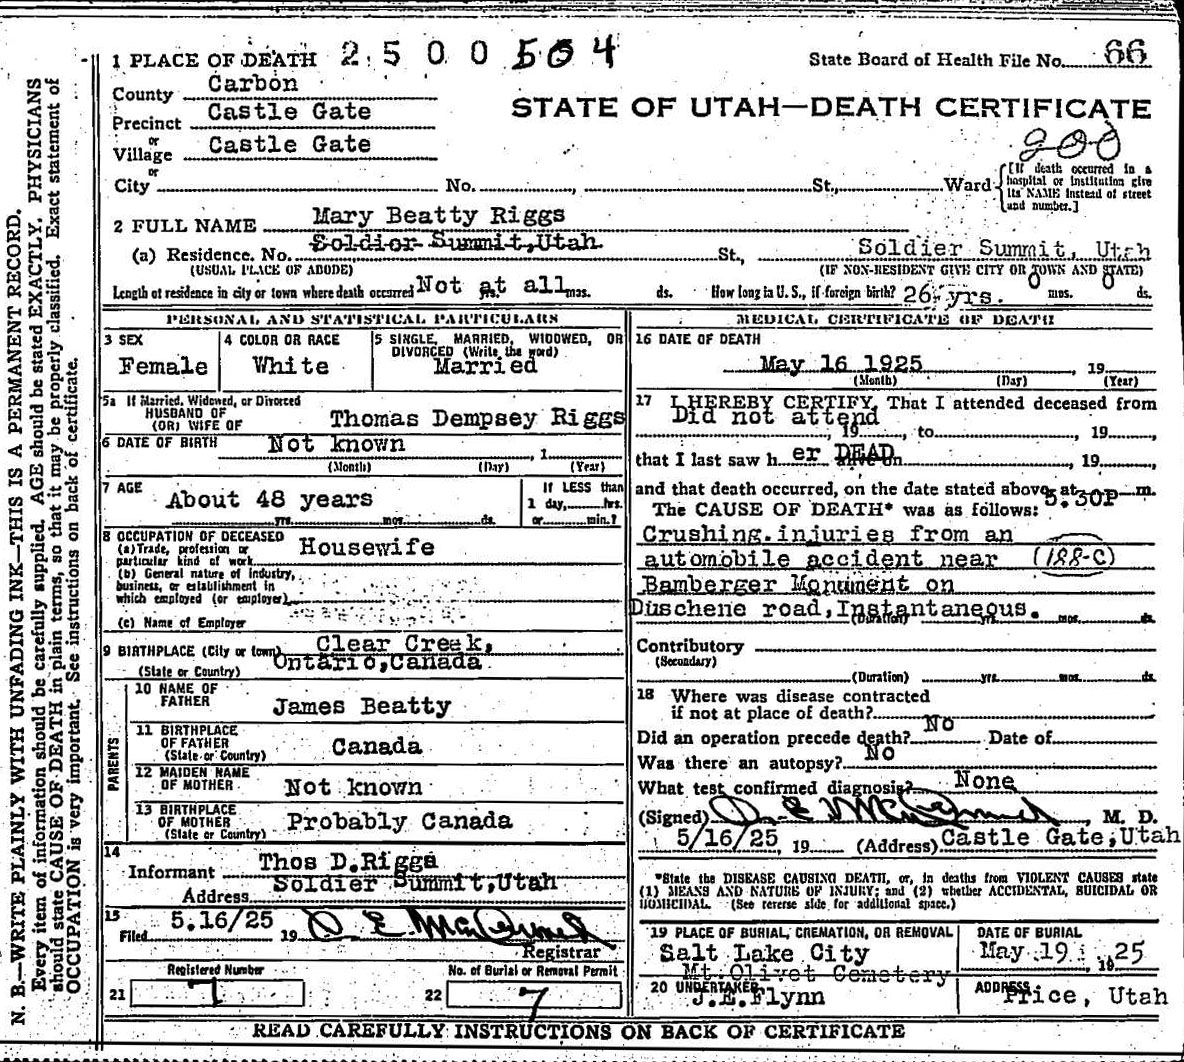 1 PLACE OF DEATH 2 5 0 0 504
State Board of Health File No. 66
County Carbon
STATE OF UTAH—DEATH CERTIFICATE
Precinct Castle Gate
or
Village Castle Gate
200
or
City No. , St., Ward
[If death occurred in a hospital or institution give its NAME instead of street and number.]
2 FULL NAME Mary Beatty Riggs
(a) Residence. No. Soldier Summit, Utah St., Soldier Summit, Utah
(USUAL PLACE OF ABODE) (IF NON-RESIDENT GIVE CITY OR TOWN AND STATE)
Length of residence in city or town where death occurred Not at all yrs. mos. ds. How long in U. S., if foreign birth? 26 yrs. 0 mos. 0 ds.
PERSONAL AND STATISTICAL PARTICULARS
3 SEX
Female
4 COLOR OR RACE
White
5 SINGLE, MARRIED, WIDOWED, OR
DIVORCED (Write the word)
Married
5a If Married, Widowed, or Divorced
HUSBAND OF
(OR) WIFE OF Thomas Dempsey Riggs
6 DATE OF BIRTH Not known , 1
(Month) (Day) (Year)
7 AGE
About 48 years
yrs. mos. ds.
If LESS than
1 day, hrs.
or min.?
8 OCCUPATION OF DECEASED
(a) Trade, profession or
particular kind of work Housewife
(b) General nature of industry,
business, or establishment in
which employed (or employer)
(c) Name of Employer
9 BIRTHPLACE (City or town) Clear Creek,
(State or Country) Ontario, Canada
PARENTS
10 NAME OF
FATHER James Beatty
11 BIRTHPLACE
OF FATHER
(State or Country) Canada
12 MAIDEN NAME
OF MOTHER Not known
13 BIRTHPLACE
OF MOTHER
(State or Country) Probably Canada
14
Informant Thos D.Riggs
Address Soldier Summit, Utah
15
Filed 5.16/25 19
Registrar
Registered Number
21 7
No. of Burial or Removal Permit
22 7
MEDICAL CERTIFICATE OF DEATH
16 DATE OF DEATH
May 16 1925 , 19
(Month) (Day) (Year)
17 I HEREBY CERTIFY, That I attended deceased from
Did not attend
, 19 , to , 19
that I last saw h er DEAD alive on , 19
and that death occurred, on the date stated above, at 5.30P m.
The CAUSE OF DEATH* was as follows:
Crushing injuries from an
automobile accident near (188-C)
Bamberger Monument on
Duschene road, Instantaneous.
(Duration) yrs. mos. ds.
Contributory
(Secondary)
(Duration) yrs. mos. ds.
18 Where was disease contracted
if not at place of death?
Did an operation precede death? No Date of
Was there an autopsy? No
What test confirmed diagnosis? None
(Signed) , M. D.
5/16/25 , 19 (Address) Castle Gate, Utah
*State the DISEASE CAUSING DEATH, or, in deaths from VIOLENT CAUSES state
(1) MEANS AND NATURE OF INJURY; and (2) whether ACCIDENTAL, SUICIDAL OR
HOMICIDAL. (See reverse side for additional space.)
19 PLACE OF BURIAL, CREMATION, OR REMOVAL
Salt Lake City
Mt. Olivet Cemetery
DATE OF BURIAL
May 19 , 19 25
20 UNDERTAKER
J.E.Flynn
ADDRESS
Price, Utah
READ CAREFULLY INSTRUCTIONS ON BACK OF CERTIFICATE
N. B.—WRITE PLAINLY WITH UNFADING INK—THIS IS A PERMANENT RECORD.
Every item of information should be carefully supplied. AGE should be stated EXACTLY. PHYSICIANS
should state CAUSE OF DEATH in plain terms, so that it may be properly classified. Exact statement of
OCCUPATION is very important. See instructions on back of certificate.